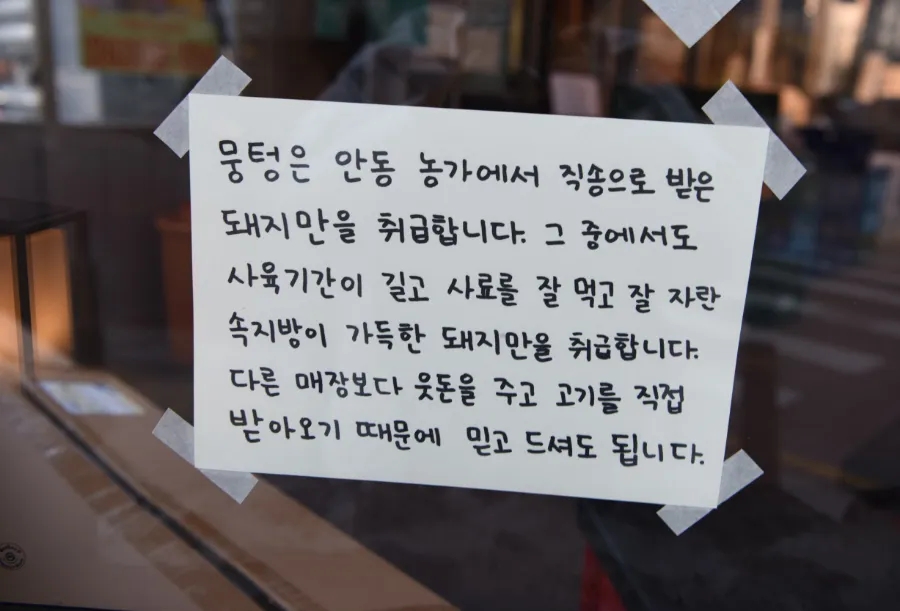 뭉텅은 안동 농가에서 직송으로 받은
돼지만을 취급합니다. 그 중에서도
사육기간이 길고 사료를 잘 먹고 잘 자란
속지방이 가득한 돼지만을 취급합니다.
다른 매장보다 웃돈을 주고 고기를 직접
받아오기 때문에 믿고 드셔도 됩니다.